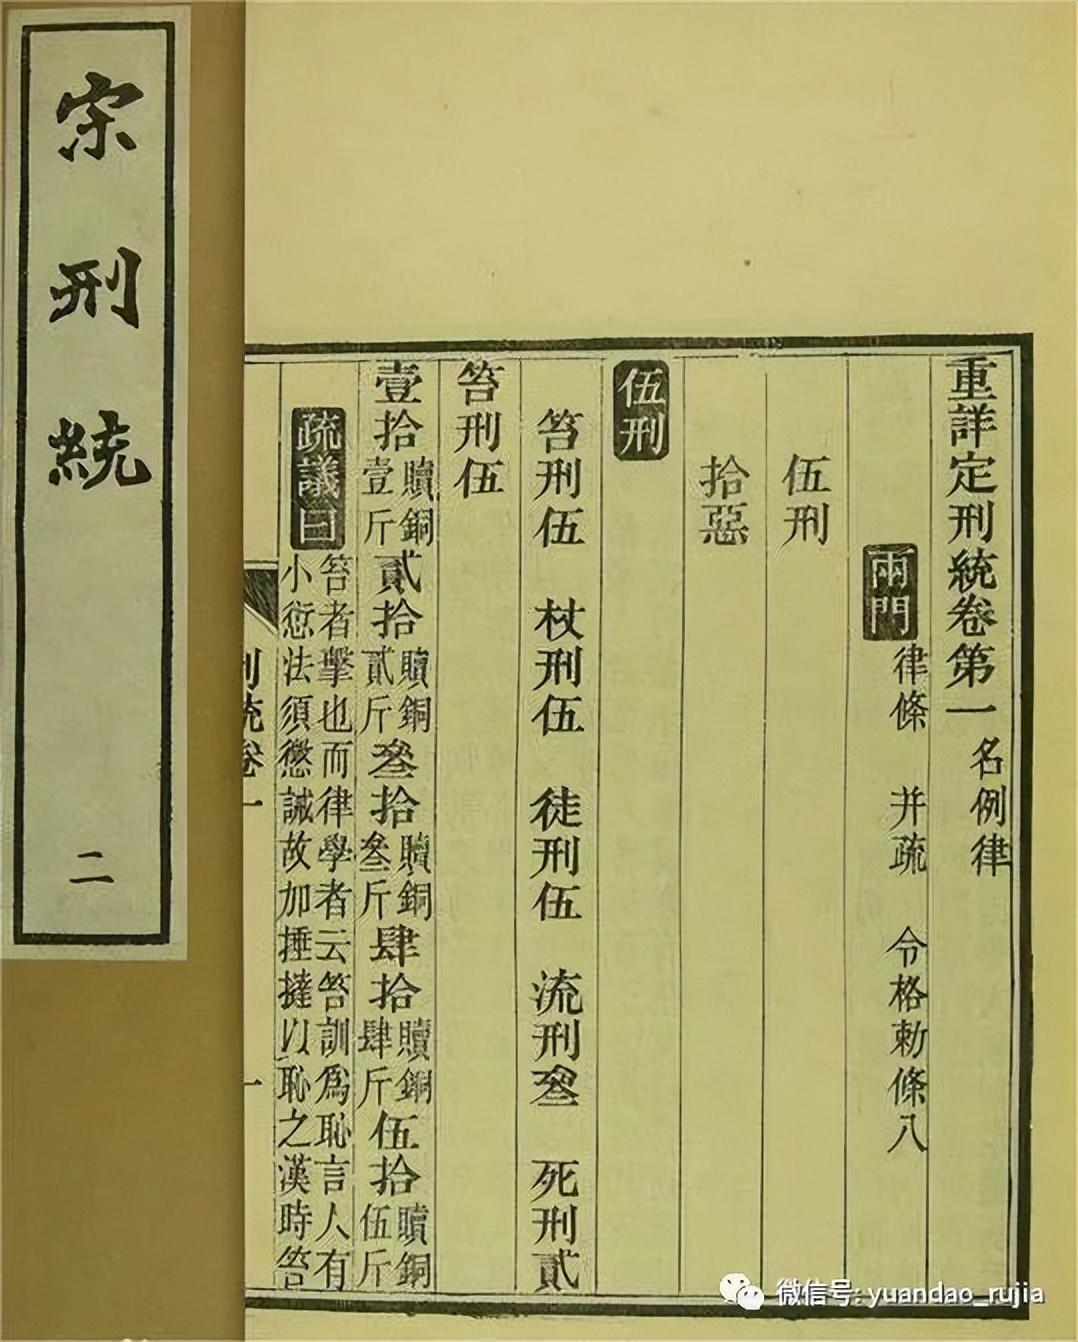 宗刑統
二
重詳定刑統卷第一 名例律
兩門 律條 并疏 令格勅條八
伍刑
拾惡
伍刑
笞刑伍 杖刑伍 徒刑伍 流刑叄 死刑貳
笞刑伍
壹拾贖銅壹斤貳拾贖銅貳斤叄拾贖銅叄斤肆拾贖銅肆斤伍拾贖銅伍斤
疏議曰
笞者擊也而律學者云笞訓爲恥言人有
小愆法須懲誡故加捶撻以恥之漢時笞
刑統卷一
一
微信号: yuandao_rujia